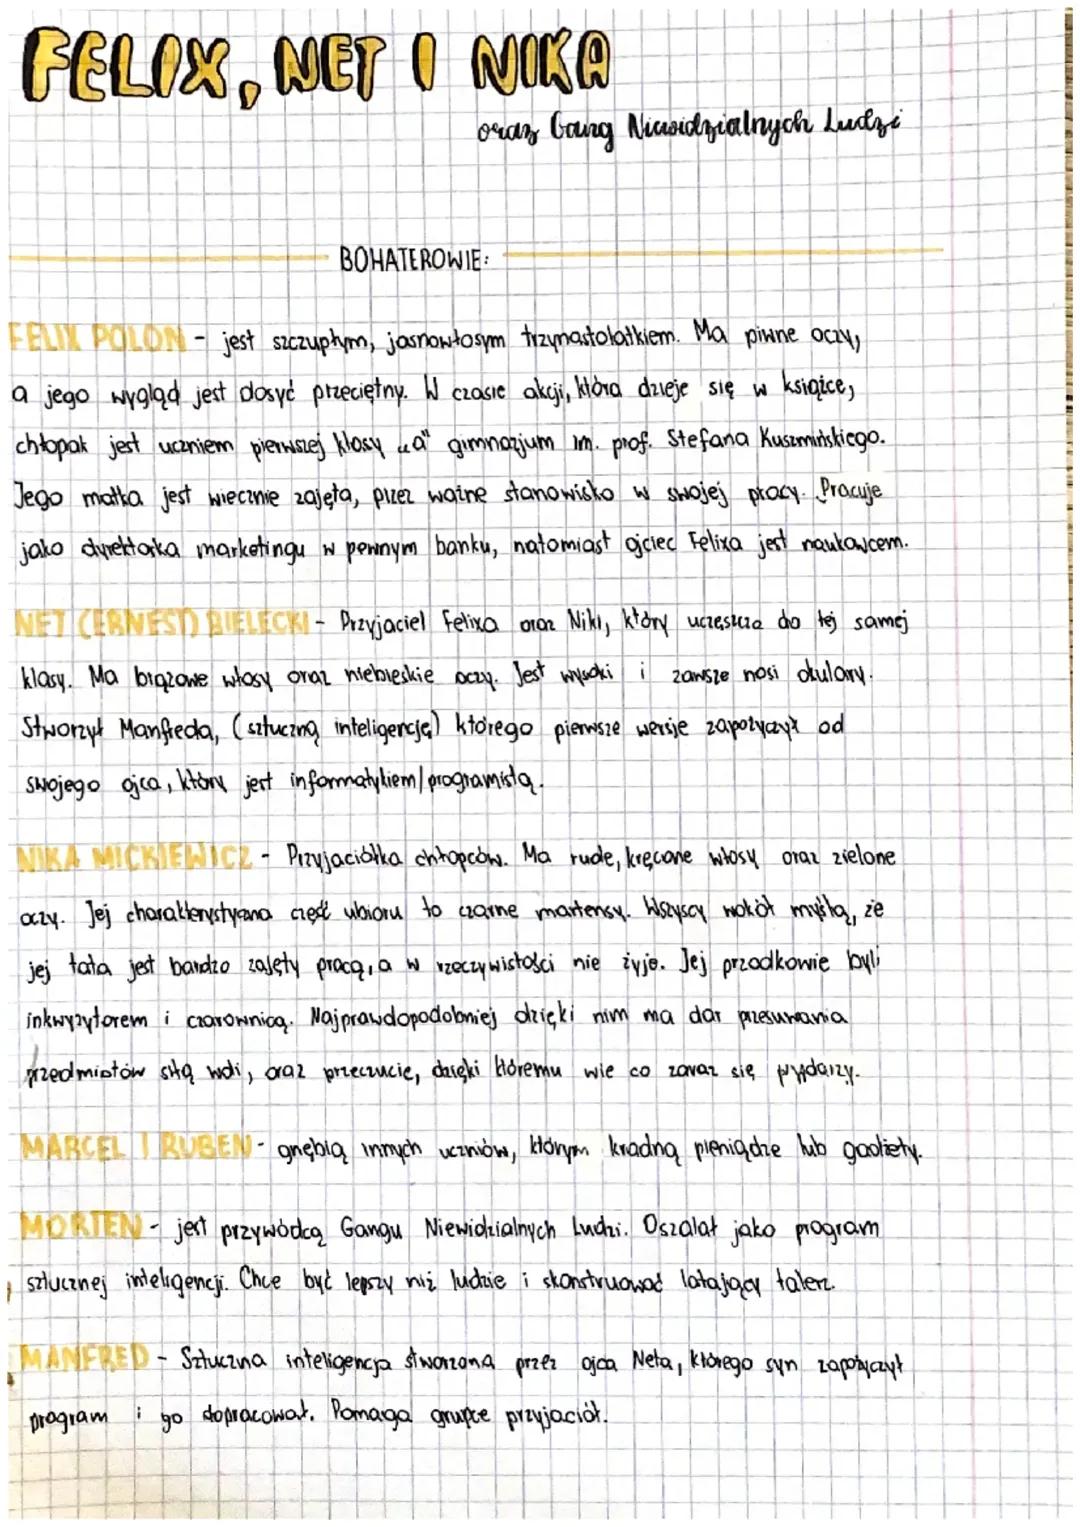 FELIX, NET I NIKA
oraz Gang Niewidzialnych Ludzi
BOHATEROWIE:
FELIX POLON - jest szczupłym, jasnowłosym trzynastolatkiem. Ma piwne oczy,
a jego wygląd jest dosyć przeciętny. W czasie akcji, która dzieje się w książce,
chłopak jest uczniem pierwszej klasy „a" gimnazjum im. prof. Stefana Kuszmińskiego.
Jego matka jest wiecznie zajęta, przez ważne stanowisko w swojej pracy. Pracuje
jako dyrektorka marketingu w pewnym banku, natomiast ojciec Felixa jest naukowcem.
NET (ERNEST) BIELECKI - Przyjaciel Felixa oraz Niki, który uczęszcza do tej samej
klasy. Ma brązowe włosy oraz niebieskie oczy. Jest wysoki i zawsze nosi okulary.
Stworzył Manfreda, (sztuczną inteligencję) którego pierwsze wersje zapożyczył od
swojego ojca, który jest informatykiem/programistą.
NIKA MICKIEWICZ - Przyjaciółka chłopców. Ma rude, kręcone włosy oraz zielone
oczy. Jej charakterystyczna część ubioru to czarne martensy. Wszyscy wokół myślą, że
jej tata jest bardzo zajęty pracą, a w rzeczywistości nie żyje. Jej przodkowie byli
inkwyzytorem i czarownicą. Najprawdopodobniej dzięki nim ma dar przesuwania
przedmiotów siłą woli, oraz przeczucie, dzięki któremu wie co zaraz się wydarzy.
MARCEL I RUBEN - gnębią innych uczniów, którym kradną pieniądze lub gadżety.
MORTEN - jest przywódcą Gangu Niewidzialnych Ludzi. Oszalał jako program
sztucznej inteligencji. Chce być lepszy niż ludzie i skonstruować latający talerz.
MANFRED - Sztuczna inteligencja stworzona przez ojca Neta, którego syn zapożyczył
program i go dopracował. Pomaga grupce przyjaciół.